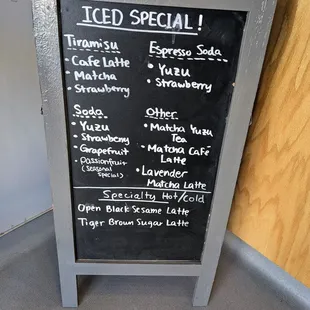 ICED SPECIAL!
Tiramisu
• Cafe Latte
• Matcha
• Strawberry
Espresso Soda
• Yuzu
• Strawberry
Soda
• Yuzu
• Strawberry
• Grapefruit
• Passionfruit
(Seasonal
Special)
Other
• Matcha Yuzu
Tea
• Matcha Cafe
Latte
• Lavender
Matcha Latte
Specialty Hot/Cold
Open Black Sesame Latte
Tiger Brown Sugar Latte